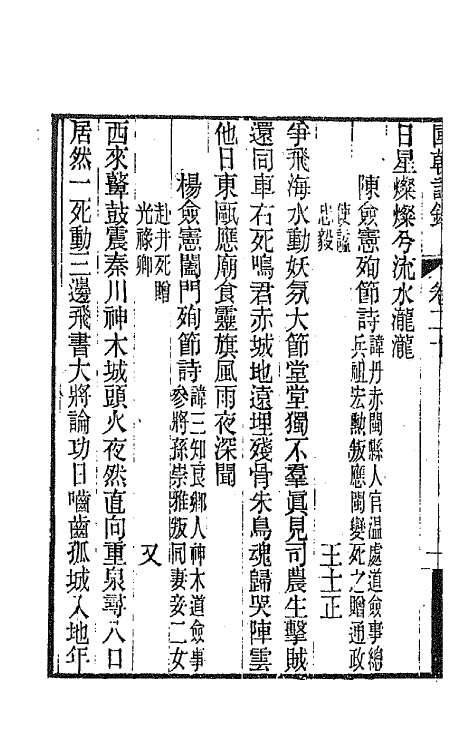 國朝詩
卷二十
日星燦燦兮流水瀧瀧
陳僉憲殉節詩 諱丹赤閩縣人官温處道僉事總兵祖宏勲叛應閩變死之贈通政使謚忠毅
王士正
爭飛海水動妖氛大節堂堂獨不羣眞見司農生擊賊
還同車右死鳴君赤城地遠埋殘骨朱鳥魂歸哭陣雲
他日東甌應廟食靈旗風雨夜深聞
楊僉憲闔門殉節詩 諱三知良鄉人神木道僉事參將孫崇雅叛同妻妾二女赴井死贈光祿卿
又
西來鼙鼓震秦川神木城頭火夜然直向重泉尋八口
居然一死動三邊飛書大將論功日嚙齒孤城入地年